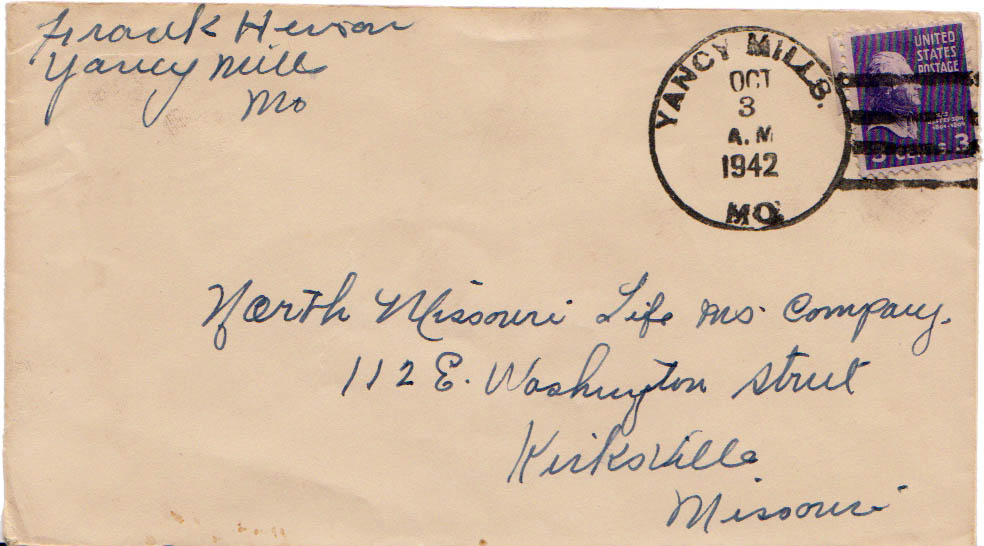 Frank Henson
Yancy Mills
Mo
YANCY MILLS.
OCT
3
A.M
1942
MO.
UNITED
STATES
POSTAGE
JEFFERSON
1801-1809
3 CENTS 3
North Missouri Life Ins. Company.
112 E. Washington Street
Kirksville
Missouri